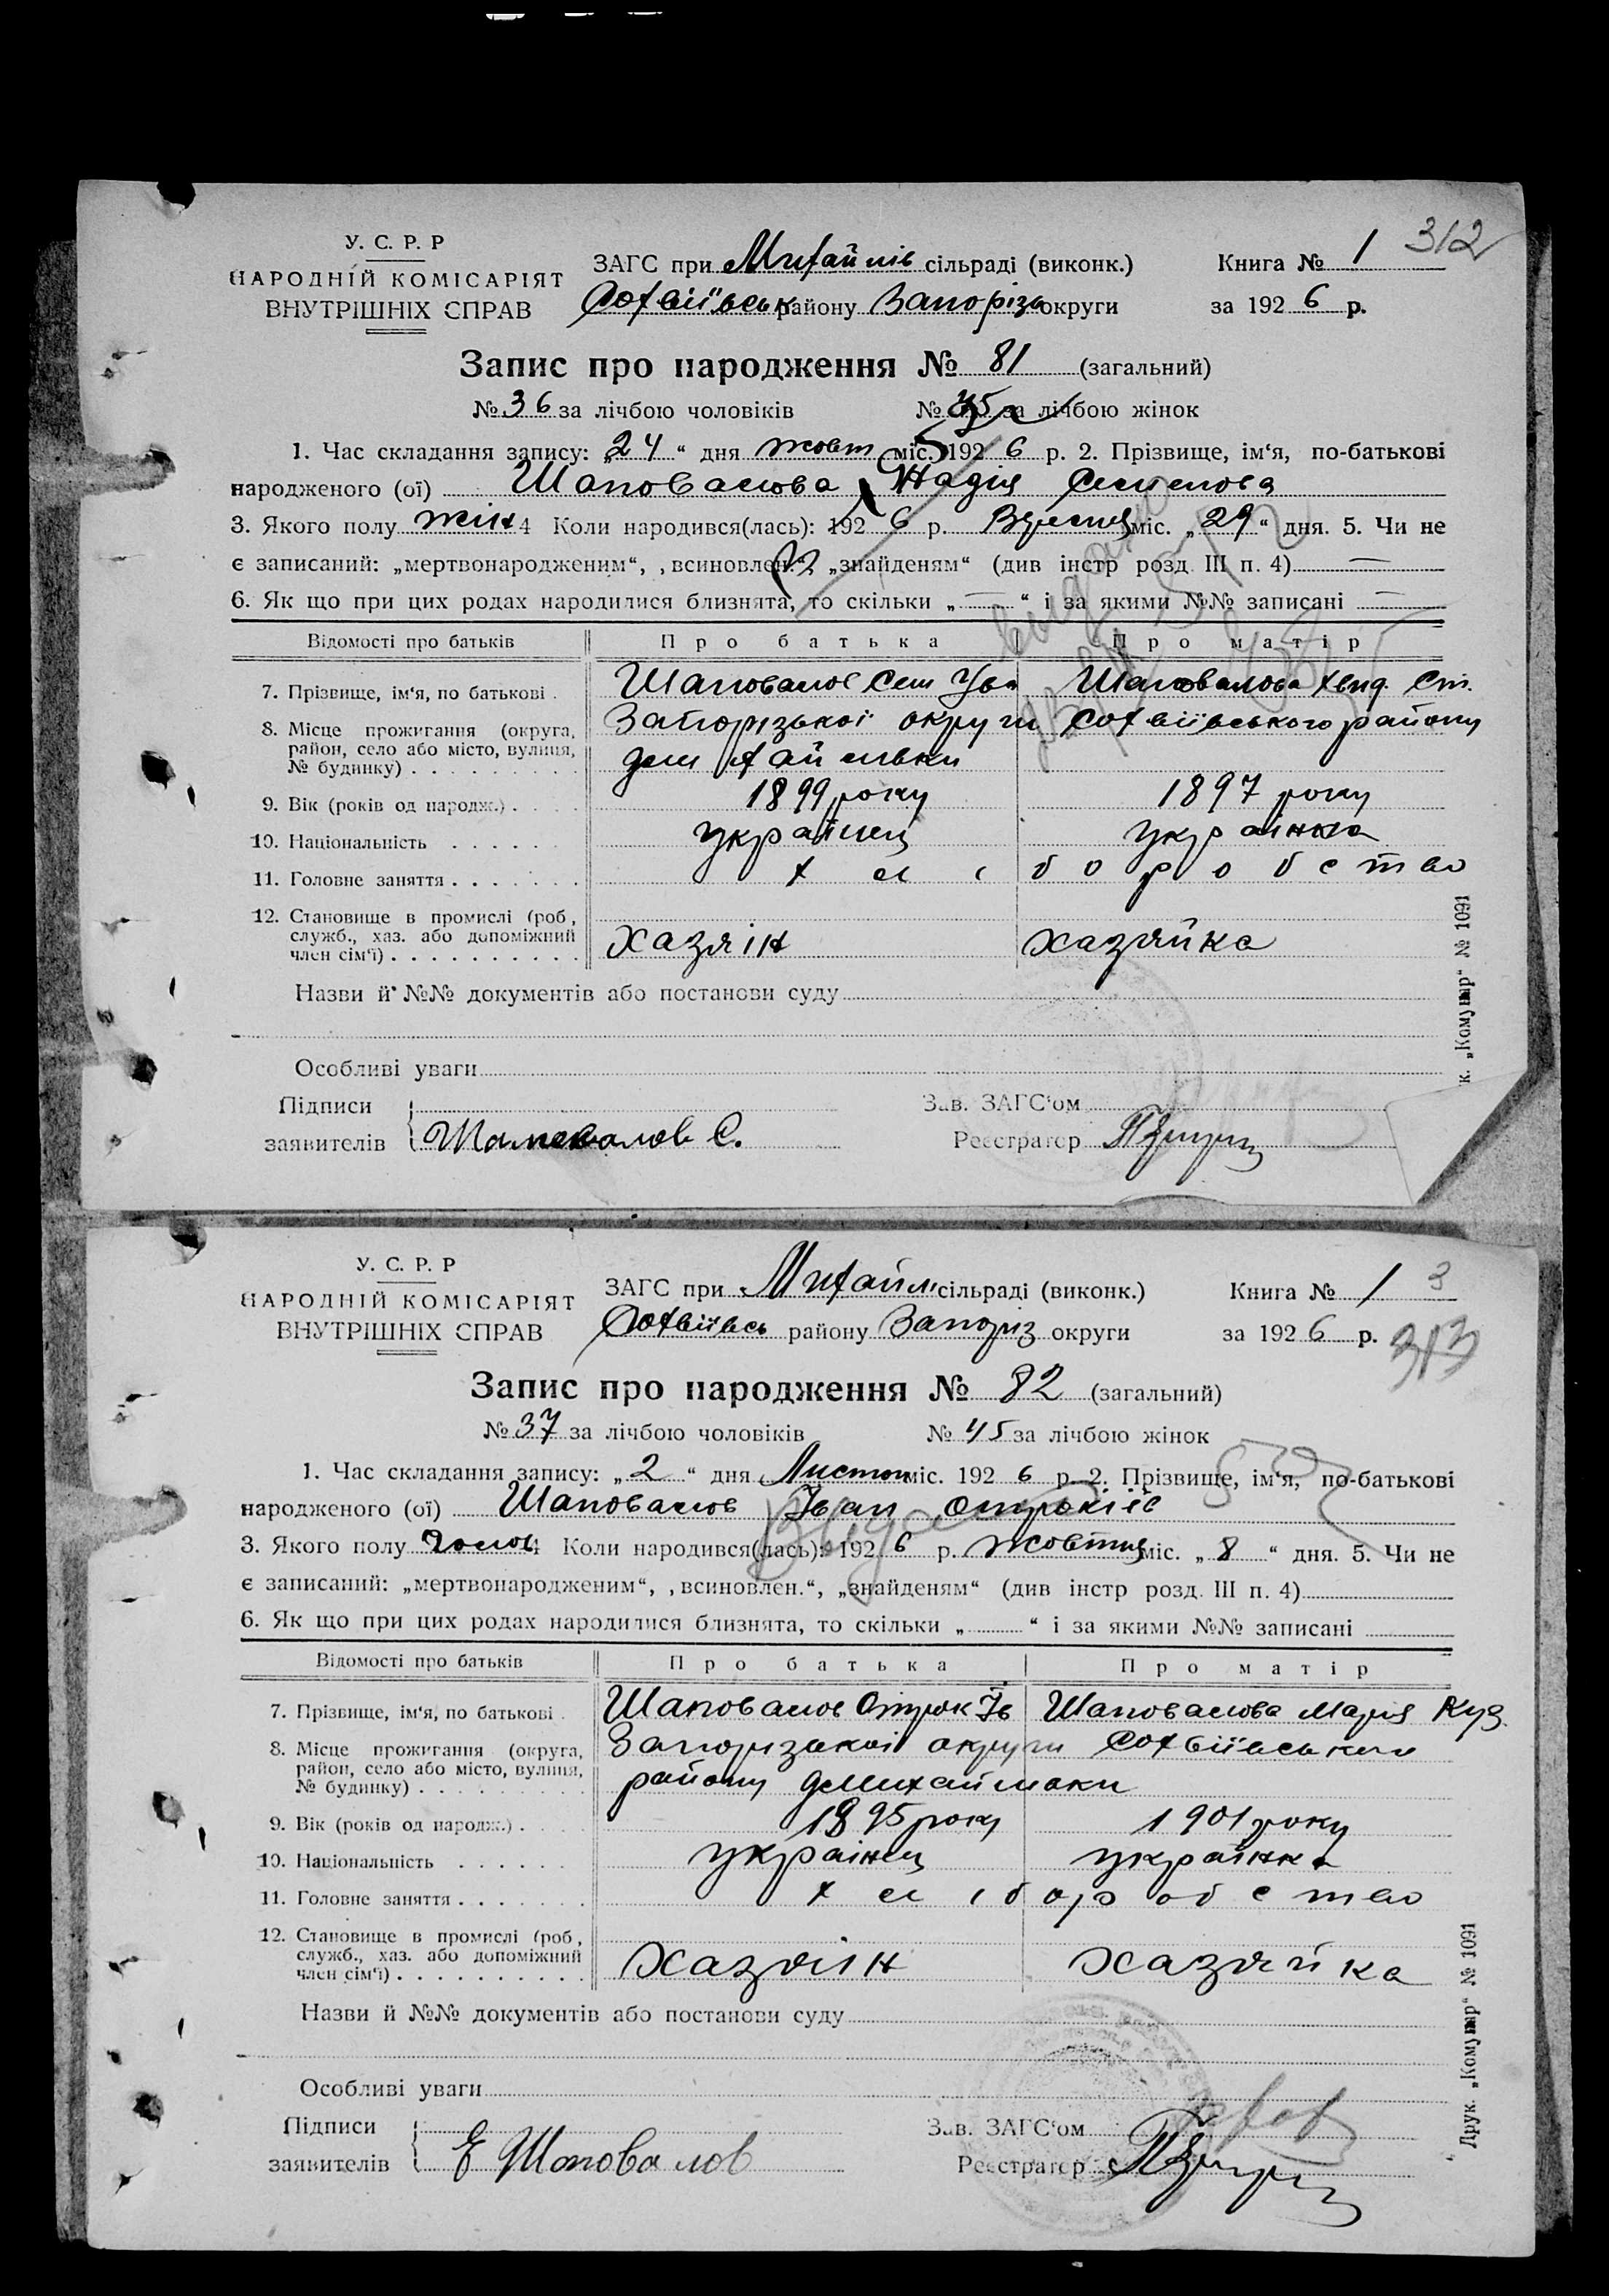 312
У. С. Р. Р
НАРОДНІЙ КОМІСАРІЯТ
ВНУТРІШНІХ СПРАВ
ЗАГС при Михайлів сільраді (виконк.) Книга № 1
Софіївськ району Запорізь округи за 1926 р.
Запис про народження № 81 (загальний)
№ 36 за лічбою чоловіків № 45 за лічбою жінок
1. Час складання запису: „24“ дня жовт міс. 1926 р. 2. Прізвище, ім‘я, по-батькові
народженого (ої) Шаповалова Надія Семенова
3. Якого полу жін 4 Коли народився(лась): 1926 р. Вресня міс. „29“ дня. 5. Чи не
є записаний: „мертвонародженим“, „всиновлен.“, „знайденям“ (див інстр розд. III п. 4) —
6. Як що при цих родах народилися близнята, то скільки „—“ і за якими №№ записані —
Відомості про батьків Про батька Про матір
7. Прізвище, ім‘я, по батькові Шаповалов Сем Ува Шаповалова Хвид. Ст.
8. Місце прожигання (округа, район, село або місто, вулиця, № будинку) Запорізької округи Софіївського району
9. Вік (років од народж.) 1899 року 1897 року
10. Національність українец українка
11. Головне заняття хліборобство
12. Становище в промислі (роб., служб., хаз. або допоміжний член сім‘ї) хазяін хазяйка
Назви й №№ документів або постанови суду
Особливі уваги
Підписи заявителів Шаповалов С.
Зав. ЗАГС‘ом
Реєстратор
к. „Комунар“ № 1091
3
313
У. С. Р. Р
НАРОДНІЙ КОМІСАРІЯТ
ВНУТРІШНІХ СПРАВ
ЗАГС при Михайлі сільраді (виконк.) Книга № 1
Софіївсь району Запоріз округи за 1926 р.
Запис про народження № 82 (загальний)
№ 37 за лічбою чоловіків № 45 за лічбою жінок
1. Час складання запису: „2“ дня Листоп міс. 1926 р. 2. Прізвище, ім‘я, по-батькові
народженого (ої) Шаповалов Іван
3. Якого полу Чолов 4 Коли народився(лась): 1926 р. Жовтня міс. „8“ дня. 5. Чи не
є записаний: „мертвонародженим“, „всиновлен.“, „знайденям“ (див інстр розд. III п. 4)
6. Як що при цих родах народилися близнята, то скільки „ “ і за якими №№ записані
Відомості про батьків Про батька Про матір
7. Прізвище, ім‘я, по батькові Шаповалов Ів Шаповалова Марія Куз.
8. Місце прожигання (округа, район, село або місто, вулиця, № будинку) Запорізької округи Софіївського
району д Михайловки
9. Вік (років од народж.) 1895 року 1901 року
10. Національність українец українка
11. Головне заняття хліборобство
12. Становище в промислі (роб., служб., хаз. або допоміжний член сім‘ї) хазяін хазяйка
Назви й №№ документів або постанови суду
Особливі уваги
Підписи заявителів Е Шоповалов
Зав. ЗАГС‘ом
Реєстратор
Друк. „Комунар“ № 1091